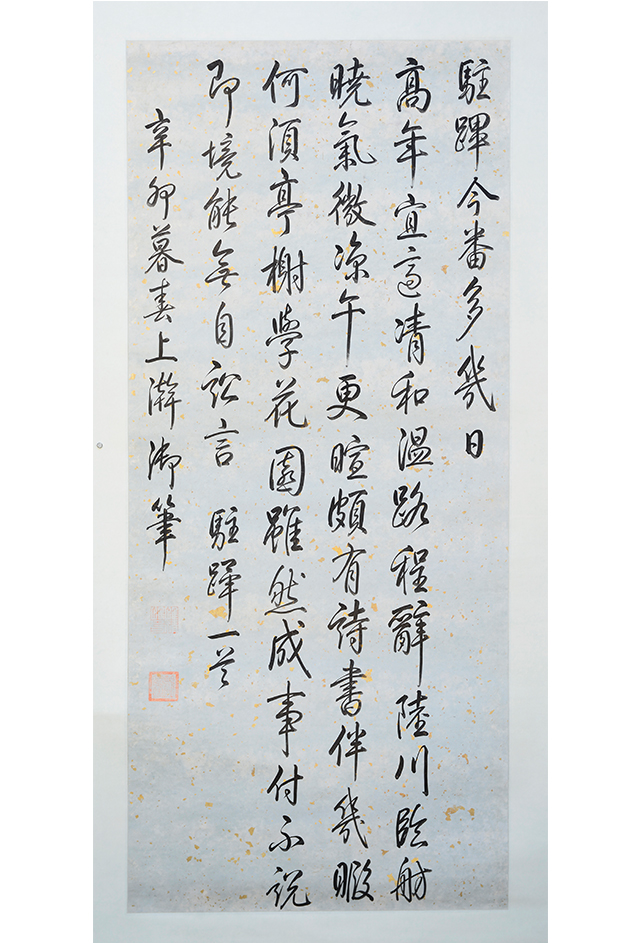 駐蹕今番多幾日
高年宜適清和温路程辭陸川臨舫
曉氣微凉午更暄頗有詩書伴幾暇
何須亭榭學花園雖然成事付不説
即境能無自訟言 駐蹕一首
辛卯暮春上澣御筆